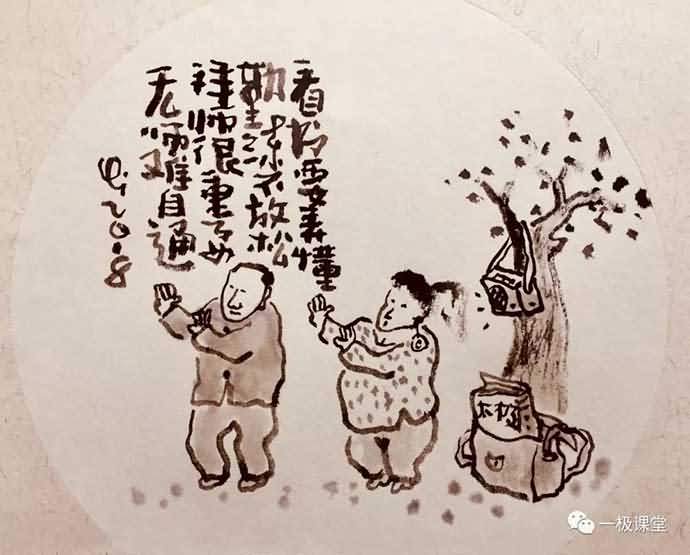 看书要弄懂
勤练不放松
拜师很重要
无师难自通
2018
太极
一极课堂